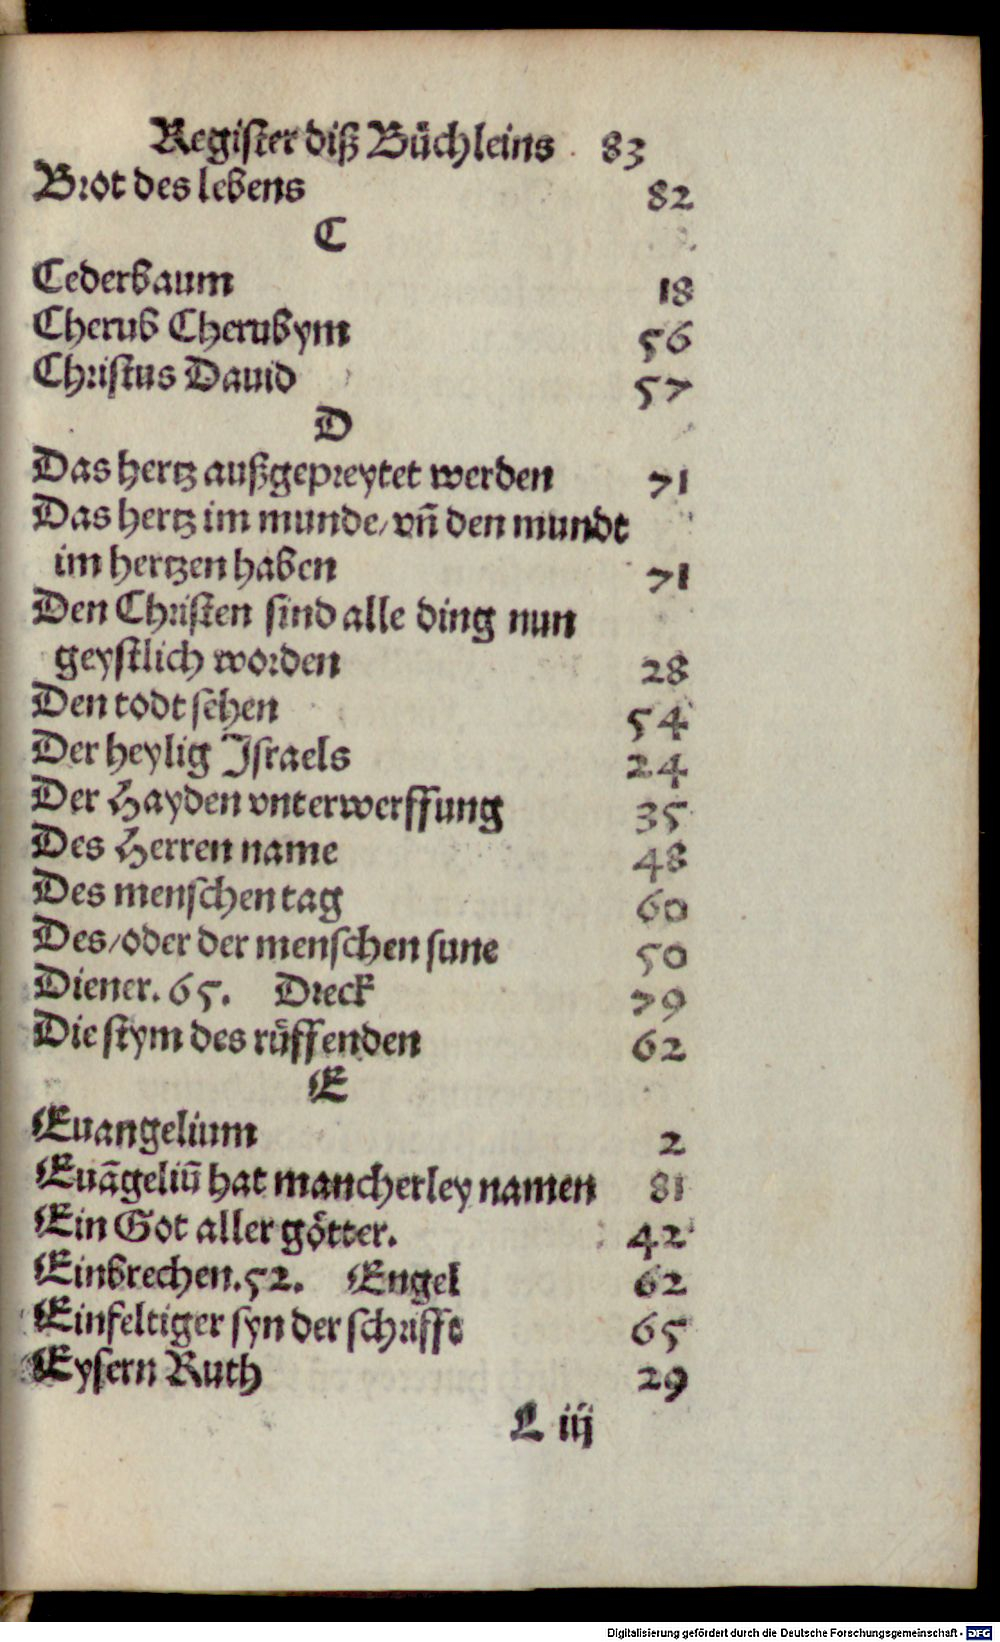 Regiſter diß Buͤchleins 83
Brot des lebens 82
C
Cederbaum 18
Cherub Cherubym 56
Chriſtus Dauid 57
D
Das hertz außgepreytet werden 71
Das hertz im munde/ vñ den mundt
im hertzen haben 71
Den Chriſten ſind alle ding nun
geyſtlich worden 28
Den todt ſehen 54
Der heylig Iſraels 24
Der Hayden vnterwerffung 35
Des Herren name 48
Des menſchen tag 60
Des/oder der menſchen ſune 50
Diener. 65. Dreck 79
Die ſtym des ruͤffenden 62
E
Euangelium 2
Euãgeliũ hat mancherley namen 81
Ein Got aller goͤtter. 42
Einbrechen. 52. Engel 62
Einfeltiger ſyn der ſchrifft 65
Eyſern Ruth 29
L iij
Digitalisierung gefördert durch die Deutsche Forschungsgemeinschaft - DFG